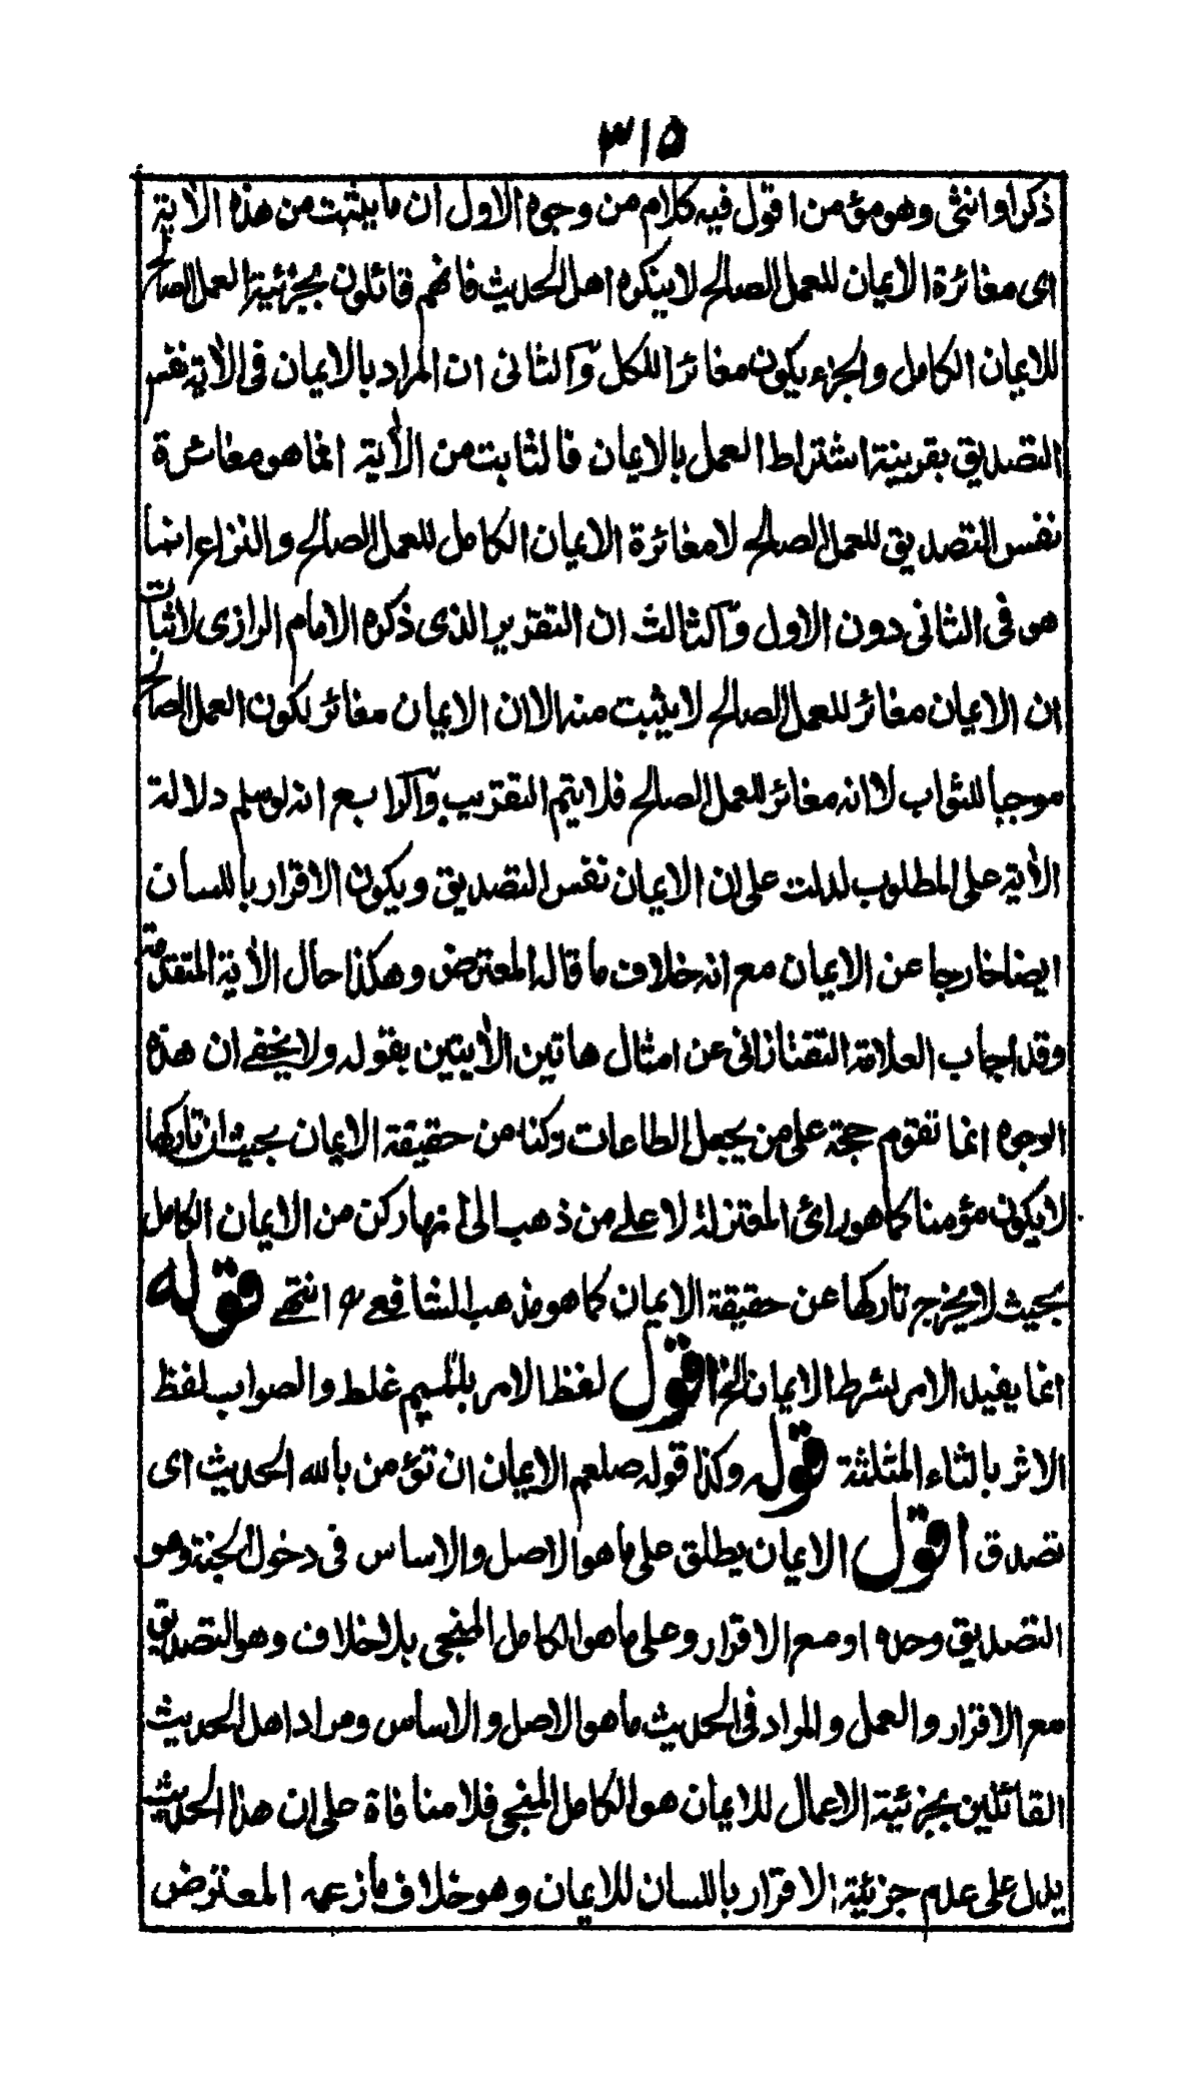 ٣١٥
ذكرا وانثى وهو مؤمن اقول فيه كلام من وجوه الاول ان ما يثبت من هذه الاٰية
اى مغائرة الايمان للعمل الصالح لا ينكره اهل الحديث فانهم قائلون بجزئية العمل الصالح
للايمان الكامل والجزء يكون مغائرا للكل والثانى ان المراد بالايمان فى الاٰية نفس
التصديق بقرينة اشتراط العمل بالايمان فالثابت من الاٰية انما هو مغائرة
نفس التصديق للعمل الصالح لا مغائرة الايمان الكامل للعمل الصالح والنزاع انما
هو فى الثانى دون الاول والثالث ان التقرير الذى ذكره الامام الرازى لاثبات
ان الايمان مغائر للعمل الصالح لا يثبت منه الا ان الايمان مغائر لكون العمل الصالح
موجبا للثواب لا انه مغائر للعمل الصالح فلا يتم التقريب والرابع انه لو سلم دلالة
الاٰية على المطلوب لدلت على ان الايمان نفس التصديق ويكون الاقرار باللسان
ايضا خارجا عن الايمان مع انه خلاف ما قاله المعترض وهكذا حال الاٰية المتقدمة
وقد اجاب العلامة التفتازانى عن امثال هاتين الاٰيتين بقوله ولا يخفے ان هذه
الوجوه انما تقوم حجة على من يجعل الطاعات ركنا من حقيقة الايمان بحيث ان تاركها
لا يكون مؤمنا كما هو رائ المعتزلة لا علے من ذهب الى انها ركن من الايمان الكامل
بحيث لا يخرج تاركها عن حقيقة الايمان كما هو مذهب الشافعے انتهے قوله
انما يفيد الامر بشرط الايمان الخ اقول لفظ الامر بالميم غلط والصواب لفظ
الاثر بالثاء المثلثة قوله وكذا قوله صلعم الايمان ان تؤمن بالله الحديث اى
تصدق اقول الايمان يطلق على ما هو الاصل والاساس فى دخول الجنة وهو
التصديق وحده او مع الاقرار وعلى ما هو الكامل المنجى بلا خلاف وهو التصديق
مع الاقرار والعمل والمراد فى الحديث ما هو الاصل والاساس ومراد اهل الحديث
القائلين بجزئية الاعمال للايمان هو الكامل المنجى فلا منافاة على ان هذا الحديث
يدل على عدم جزئية الاقرار باللسان للايمان وهو خلاف ما زعمه المعترض